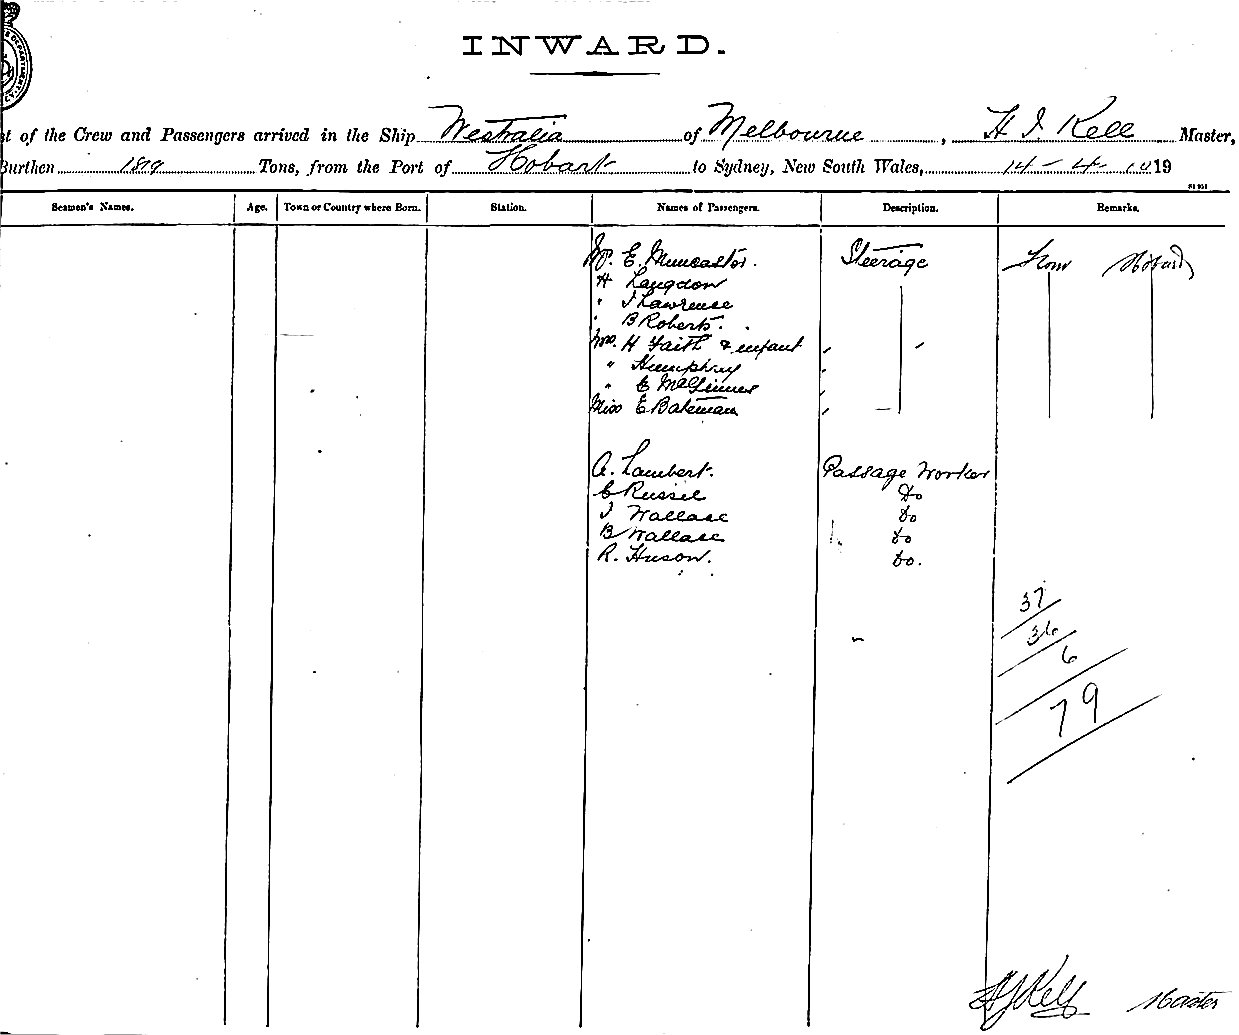 INWARD.
st of the Crew and Passengers arrived in the Ship Westralia of Melbourne, H J Kell Master,
Burthen 1819 Tons, from the Port of Hobart to Sydney, New South Wales, 14-4-1019
Seamen's Names. Age. Town or Country where Born. Station. Names of Passengers. Description. Remarks.
Mr. E. Muncaster. Steerage From Hobart
H Langdon
" J Lawrence
" B Roberts.
Mrs. H Faith & infant " "
" Humphrey "
" C McGinnes "
Miss E Bateman "
A. Lambert. Passage Worker
C Russel Do
J Wallace Do
B Wallace Do
R. Huson. Do.
37
36
6
79
HJKell Master